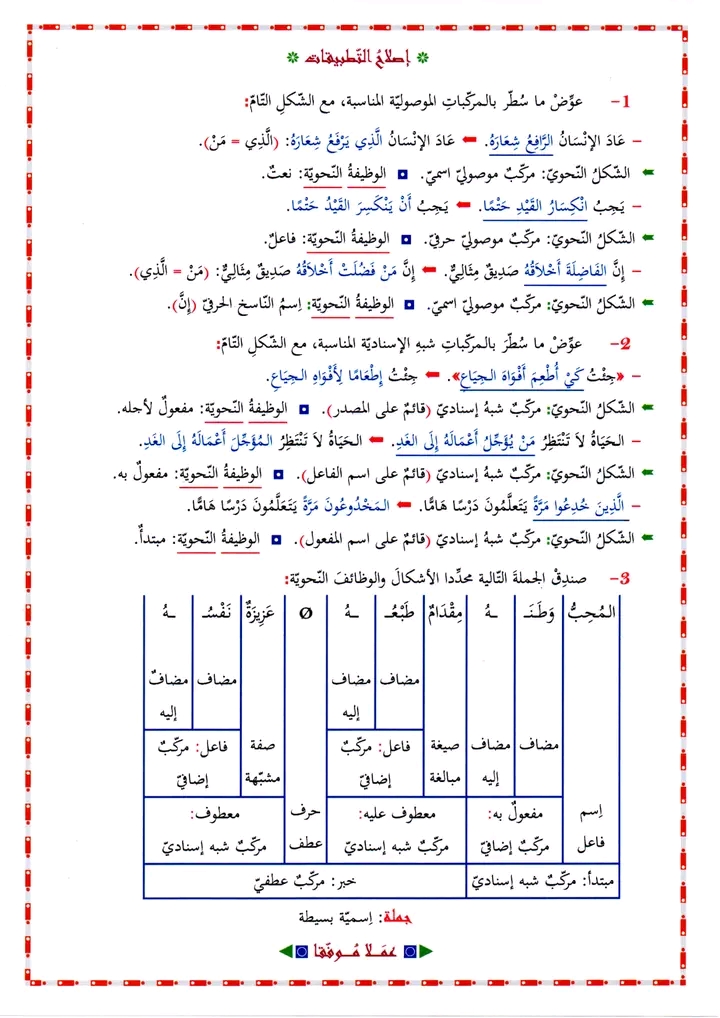 إصلاحُ التّطبيقات
1- عوِّضْ ما سُطّر بالمركّباتِ الموصوليّة المناسبة، مع الشّكلِ التّامّ:
– عَادَ الإِنْسَانُ الرَّافِعُ شِعَارَهُ. عَادَ الإِنْسَانُ الَّذِي يَرْفَعُ شِعَارَهُ: (الَّذِي = مَنْ).
الشّكلُ النّحويّ: مركّبٌ موصوليّ اسميّ. الوظيفةُ النّحويّة: نعتٌ.
– يَجِبُ انْكِسَارُ القَيْدِ حَتْمًا. يَجِبُ أَنْ يَنْكَسِرَ القَيْدُ حَتْمًا.
الشّكلُ النّحويّ: مركّبٌ موصوليّ حرفيّ. الوظيفةُ النّحويّة: فاعلٌ.
– إِنَّ الفَاضِلَةَ أَخْلاَقُهُ صَدِيقٌ مِثَالِيٌّ. إِنَّ مَنْ فَضُلَتْ أَخْلاَقُهُ صَدِيقٌ مِثَالِيٌّ: (مَنْ = الَّذِي).
الشّكلُ النّحويّ: مركّبٌ موصوليّ اسميّ. الوظيفةُ النّحويّة: اِسمُ النّاسخ الحرفيّ (إِنَّ).
2- عوِّضْ ما سُطّرَ بالمركّباتِ شبهِ الإسناديّة المناسبة، مع الشّكلِ التّامّ:
– «جِئْتُ كَيْ أُطْعِمَ أَفْوَاهَ الجِيَاعِ». جِئْتُ إِطْعَامًا لِأَفْوَاهِ الجِيَاعِ.
الشّكلُ النّحويّ: مركّبٌ شبهُ إسناديّ (قائمٌ على المصدر). الوظيفةُ النّحويّة: مفعولٌ لأجله.
– الحَيَاةُ لاَ تَنْتَظِرُ مَنْ يُؤَجِّلُ أَعْمَالَهُ إِلَى الغَدِ. الحَيَاةُ لاَ تَنْتَظِرُ المُؤَجِّلَ أَعْمَالَهُ إِلَى الغَدِ.
الشّكلُ النّحويّ: مركّبٌ شبهُ إسناديّ (قائمٌ على اسم الفاعل). الوظيفةُ النّحويّة: مفعولٌ به.
– الَّذِينَ خُدِعُوا مَرَّةً يَتَعَلَّمُونَ دَرْسًا هَامًّا. المَخْدُوعُونَ مَرَّةً يَتَعَلَّمُونَ دَرْسًا هَامًّا.
الشّكلُ النّحويّ: مركّبٌ شبهُ إسناديّ (قائمٌ على اسم المفعول). الوظيفةُ النّحويّة: مبتدأٌ.
3- صندِقْ الجملةَ التّالية محدِّدا الأشكالَ والوظائفَ النّحويّة:
المُحِبُّ وَطَنَـ ـهُ مِقْدَامٌ طَبْعُـ ـهُ Ø عَزِيزَةٌ نَفْسُـ ـهُ
مضاف مضاف مضاف مضافٌ
إليه إليه
مضاف مضاف صيغة فاعل: مركّبٌ صفة فاعل: مركّبٌ
إليه مبالغة إضافيّ مشبّهة إضافيّ
اِسم مفعولٌ به: معطوف عليه: حرف معطوف:
فاعل مركّبٌ إضافيّ مركّبٌ شبه إسناديّ عطف مركّبٌ شبه إسناديّ
مبتدأ: مركّبٌ شبه إسناديّ خبر: مركّبٌ عطفيّ
جملة: اِسميّة بسيطة
عمَلا مُوفّقا